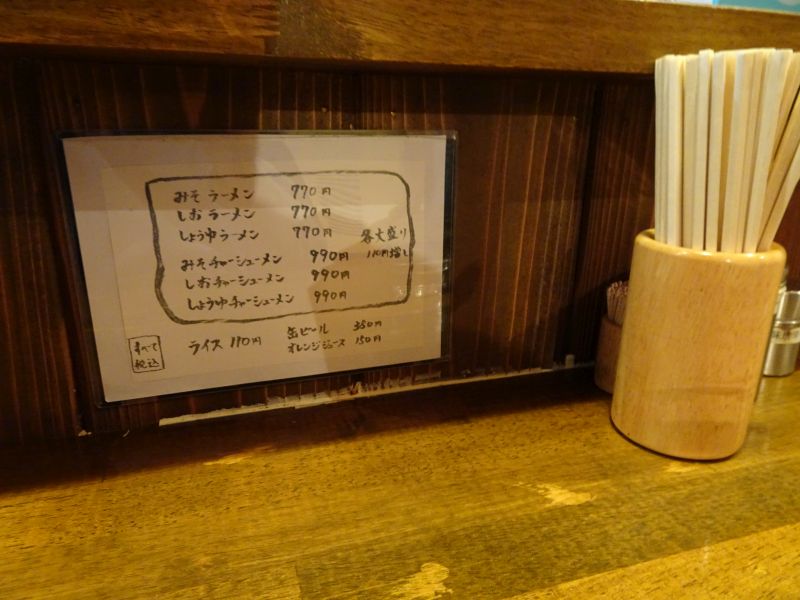 みそラーメン 770円
しおラーメン 770円
しょうゆラーメン 770円
各大盛り
110円増し
みそチャーシューメン 990円
しおチャーシューメン 990円
しょうゆチャーシューメン 990円
ライス 110円
缶ビール 350円
オレンジジュース 150円
すべて
税込